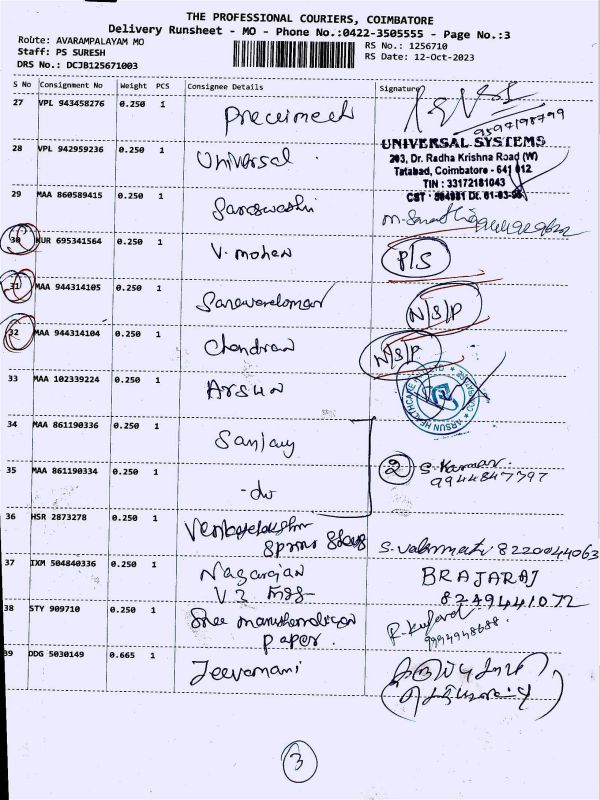 THE PROFESSIONAL COURIERS, COIMBATORE
Delivery Runsheet - MO - Phone No.:0422-3505555 - Page No.:3
Route: AVARAMPALAYAM MO
RS No.: 1256710
Staff: PS SURESH
RS Date: 12-Oct-2023
DRS No.: DCJB125671003
S No Consignment No Weight PCS Consignee Details Signature
27 VPL 943458276 0.250 1
9597198799
28 VPL 942959236 0.250 1 Universal
UNIVERSAL SYSTEMS
203, Dr. Radha Krishna Road (W)
Tatabad, Coimbatore - 641 012
TIN : 33172181043
29 MAA 860589415 0.250 1
30 KUR 695341564 0.250 1 V. mohan P/S
31 MAA 944314105 0.250 1 N/S/P
32 MAA 944314104 0.250 1 Chandran N/S/P
33 MAA 102339224 0.250 1 Arsun
ARSUN HEALTHCARE
34 MAA 861190336 0.250 1 Sanjay
35 MAA 861190334 0.250 1 -do
2 S. Kannan
9944847797
36 HSR 2873278 0.250 1
8220044063
37 IXM 504840336 0.250 1 Nagarajan BRAJARAJ
8249441072
38 STY 909710 0.250 1 Sree
paper
39 DDG 5030149 0.665 1 Jeevamani
3